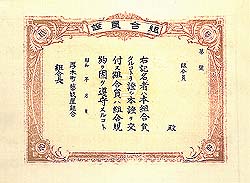 組合員證
第 號
組合員
殿
右記名者ハ本組合員
タルコトヲ證シ本證ヲ交
付ス組合員ハ組合規
約ヲ固ク遵守スルコト
昭和 年 月 日
厚木町藝妓屋組合
組合長